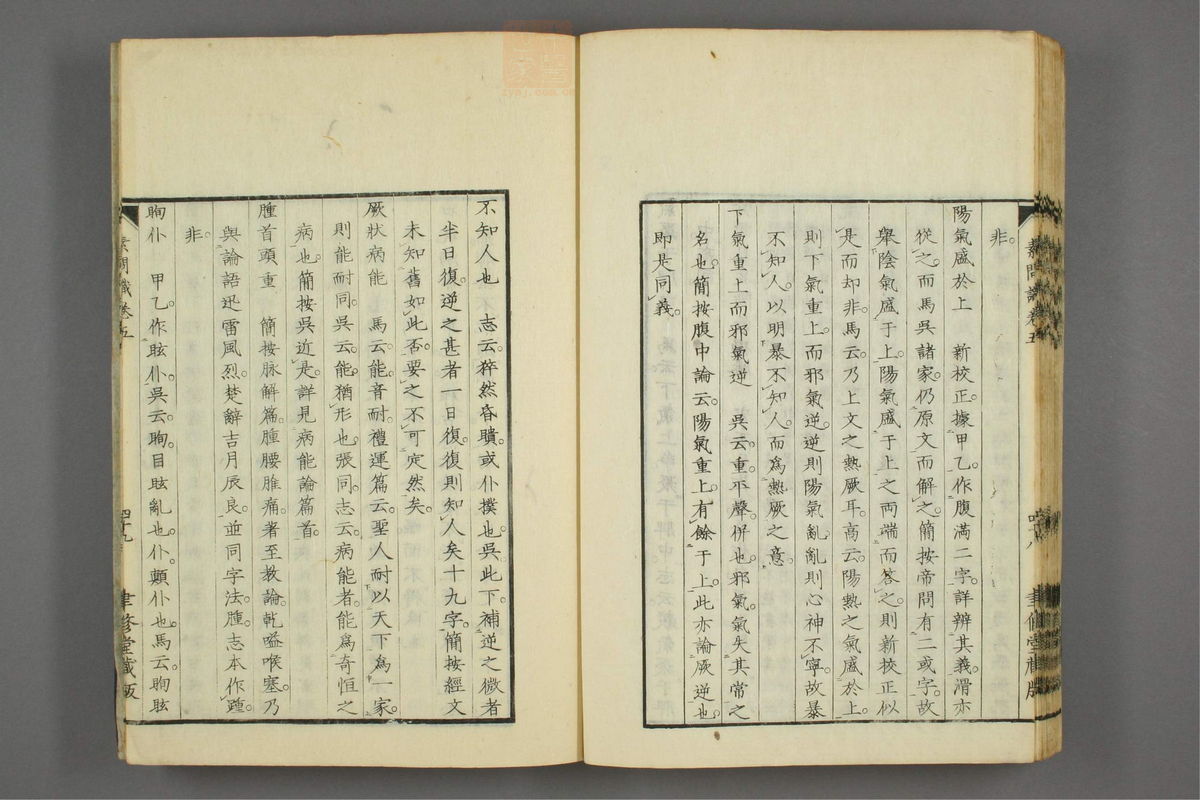 非。
陽氣盛於上　新校正。據甲乙。作腹滿二字。詳辨其義。滑亦
從之。而馬吳諸家。仍原文而解之。簡按帝問有二或字。故
舉陰氣盛于上。陽氣盛于上之兩端而答之。則新校正似
是而却非。馬云。乃上文之熱厥耳。高云。陽熱之氣盛於上。
則下氣重上。而邪氣逆。逆則陽氣亂。亂則心神不寧。故暴
不知人。以明暴不知人。而爲熱厥之意。
下氣重上而邪氣逆　吳云。重。平聲。併也。邪氣。氣失其常之
名也。簡按腹中論云。陽氣重上。有餘于上。此亦論厥逆也。
即是同義。
素問識卷五
四十八
聿修堂藏版
不知人也　志云。猝然昏聵。或仆撲也。吳。此下補逆之微者
半日復。逆之甚者一日復。復則知人矣十九字。簡按經文
未知舊如此否。要之不可定然矣。
厥狀病能　馬云。能。音耐。禮運篇云。聖人耐以天下爲一家。
則能耐同。吳云。能。猶形也。張同。志云。病能者。能爲奇恒之
病也。簡按吳近是。詳見病能論篇首。
腫首頭重　簡按脉解篇。腫腰脽痛。著至教論。乾嗌喉塞。乃
與論語迅雷風烈。楚辭吉月辰良。並同字法。腫。志本作踵。
非。
眴仆　甲乙。作眩仆。吳云。眴。目眩亂也。仆。顛仆也。馬云。眴眩
素問識卷五
四十九
聿修堂藏版